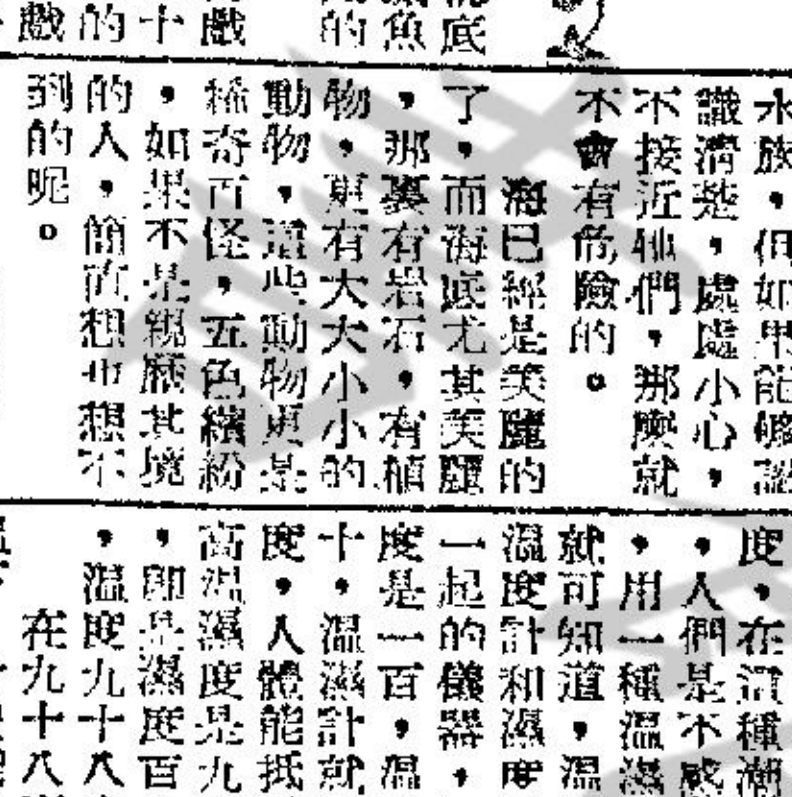 底
魚
的
戲
十
的
戲
水族，但如果能夠認
識清楚，處處小心，
不接近牠們，那麽就
不會有危險的。
海已經是美麗的
了，而海底尤其美麗
，那裏有岩石，有植
物，更有大大小小的
動物，這些動物更是
稀奇百怪，五色繽紛
，如果不是親歷其境
的人，簡直想也想不
到的呢。
度，在這種潮
，人們是不感
，用一種溫濕
就可知道，溫
溫度計和濕度
一起的儀器，
度是一百，溫
十，溫濕計就
度，人體能抵
高溫濕度是九
，即是濕度百
，溫度九十八
在九十八